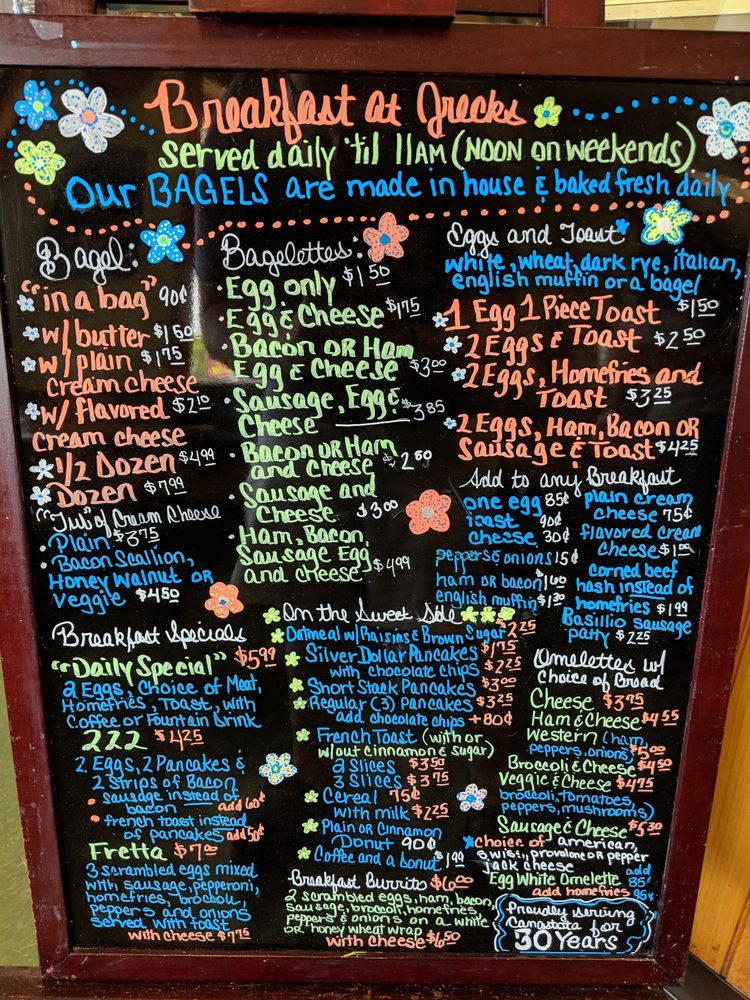 Breakfast at Grecks
Served daily 'til 11AM (NOON on weekends)
Our BAGELS are made in house & baked fresh daily
Bagel:
"in a bag" 90¢
w/ butter $1.50
w/ plain $1.75
cream cheese
w/ flavored $2.10
cream cheese
1/2 Dozen $4.99
Dozen $7.99
"Tub" of Cream Cheese
Plain $3.75
Bacon Scallion,
Honey Walnut OR
Veggie $4.50
Breakfast Specials
"Daily Special" $5.99
2 Eggs, Choice of Meat,
Homefries, Toast, with
Coffee or Fountain Drink
222 $4.25
2 Eggs, 2 Pancakes &
2 Strips of Bacon
sausage instead of
bacon add 60¢
french toast instead
of pancakes add 50¢
Fretta $7.00
3 scrambled eggs mixed
with sausage, pepperoni,
homefries, broccoli,
peppers and onions
served with toast
with cheese $7.75
Bagelettes:
Egg only $1.50
Egg & Cheese $1.75
Bacon OR Ham
Egg & Cheese $3.00
Sausage, Egg &
Cheese $3.85
Bacon OR Ham
and cheese $2.50
Sausage and
Cheese $3.00
Ham, Bacon,
Sausage Egg
and cheese $4.99
On the Sweet Side
Oatmeal w/ Raisins & Brown Sugar 2.25
Silver Dollar Pancakes $1.75
with chocolate chips $2.25
Short Stack Pancakes $3.00
Regular (3) Pancakes $3.25
add chocolate chips +80¢
French Toast (with or
w/out cinnamon & sugar)
2 Slices $3.50
3 Slices $3.75
Cereal 75¢
with milk $2.25
Plain or Cinnamon
Donut 90¢
Coffee and a Donut $1.99
Breakfast Burrito $6.00
2 scrambled eggs, ham, bacon,
sausage, broccoli, homefries,
peppers & onions on a white
OR honey wheat wrap
with cheese $6.50
Eggs and Toast*
white, wheat, dark rye, italian,
english muffin or a bagel
1 Egg 1 Piece Toast $1.50
2 Eggs & Toast $2.50
2 Eggs, Homefries and
Toast $3.25
2 Eggs, Ham, Bacon OR
Sausage & Toast $4.25
Add to any Breakfast
one egg 85¢
toast 90¢
cheese 30¢
peppers & onions 15¢
ham or bacon $1.60
english muffin $1.30
plain cream
cheese 75¢
flavored cream
cheese $1.00
corned beef
hash instead of
homefries $1.99
Basillio sausage
patty $2.25
Omelettes w/
choice of bread
Cheese $3.75
Ham & Cheese $4.55
Western (ham,
peppers, onions) $5.00
Broccoli & Cheese $4.50
Veggie & Cheese $4.75
broccoli, tomatoes,
peppers, mushrooms)
Sausage & Cheese $5.30
*choice of american,
swiss, provolone OR pepper
jack cheese
Egg White Omelette add 85¢
add homefries 95¢
Proudly serving
Canastota for
30 Years